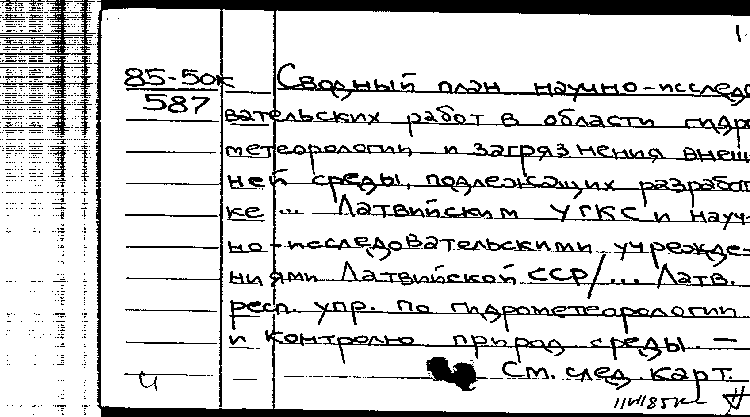 1
85-50к Сводный план научно-исследо
587 вательских работ в области гидро
метеорологии и загрязнения внеш
ней среды, подлежащих разработ
ке ... Латвийским УГКС и науч-
но-исследовательскими учрежде-
ниями Латвийской ССР/... Латв.
респ. упр. по гидрометеорологии
и контролю природ среды. —
ч См. след. карт.